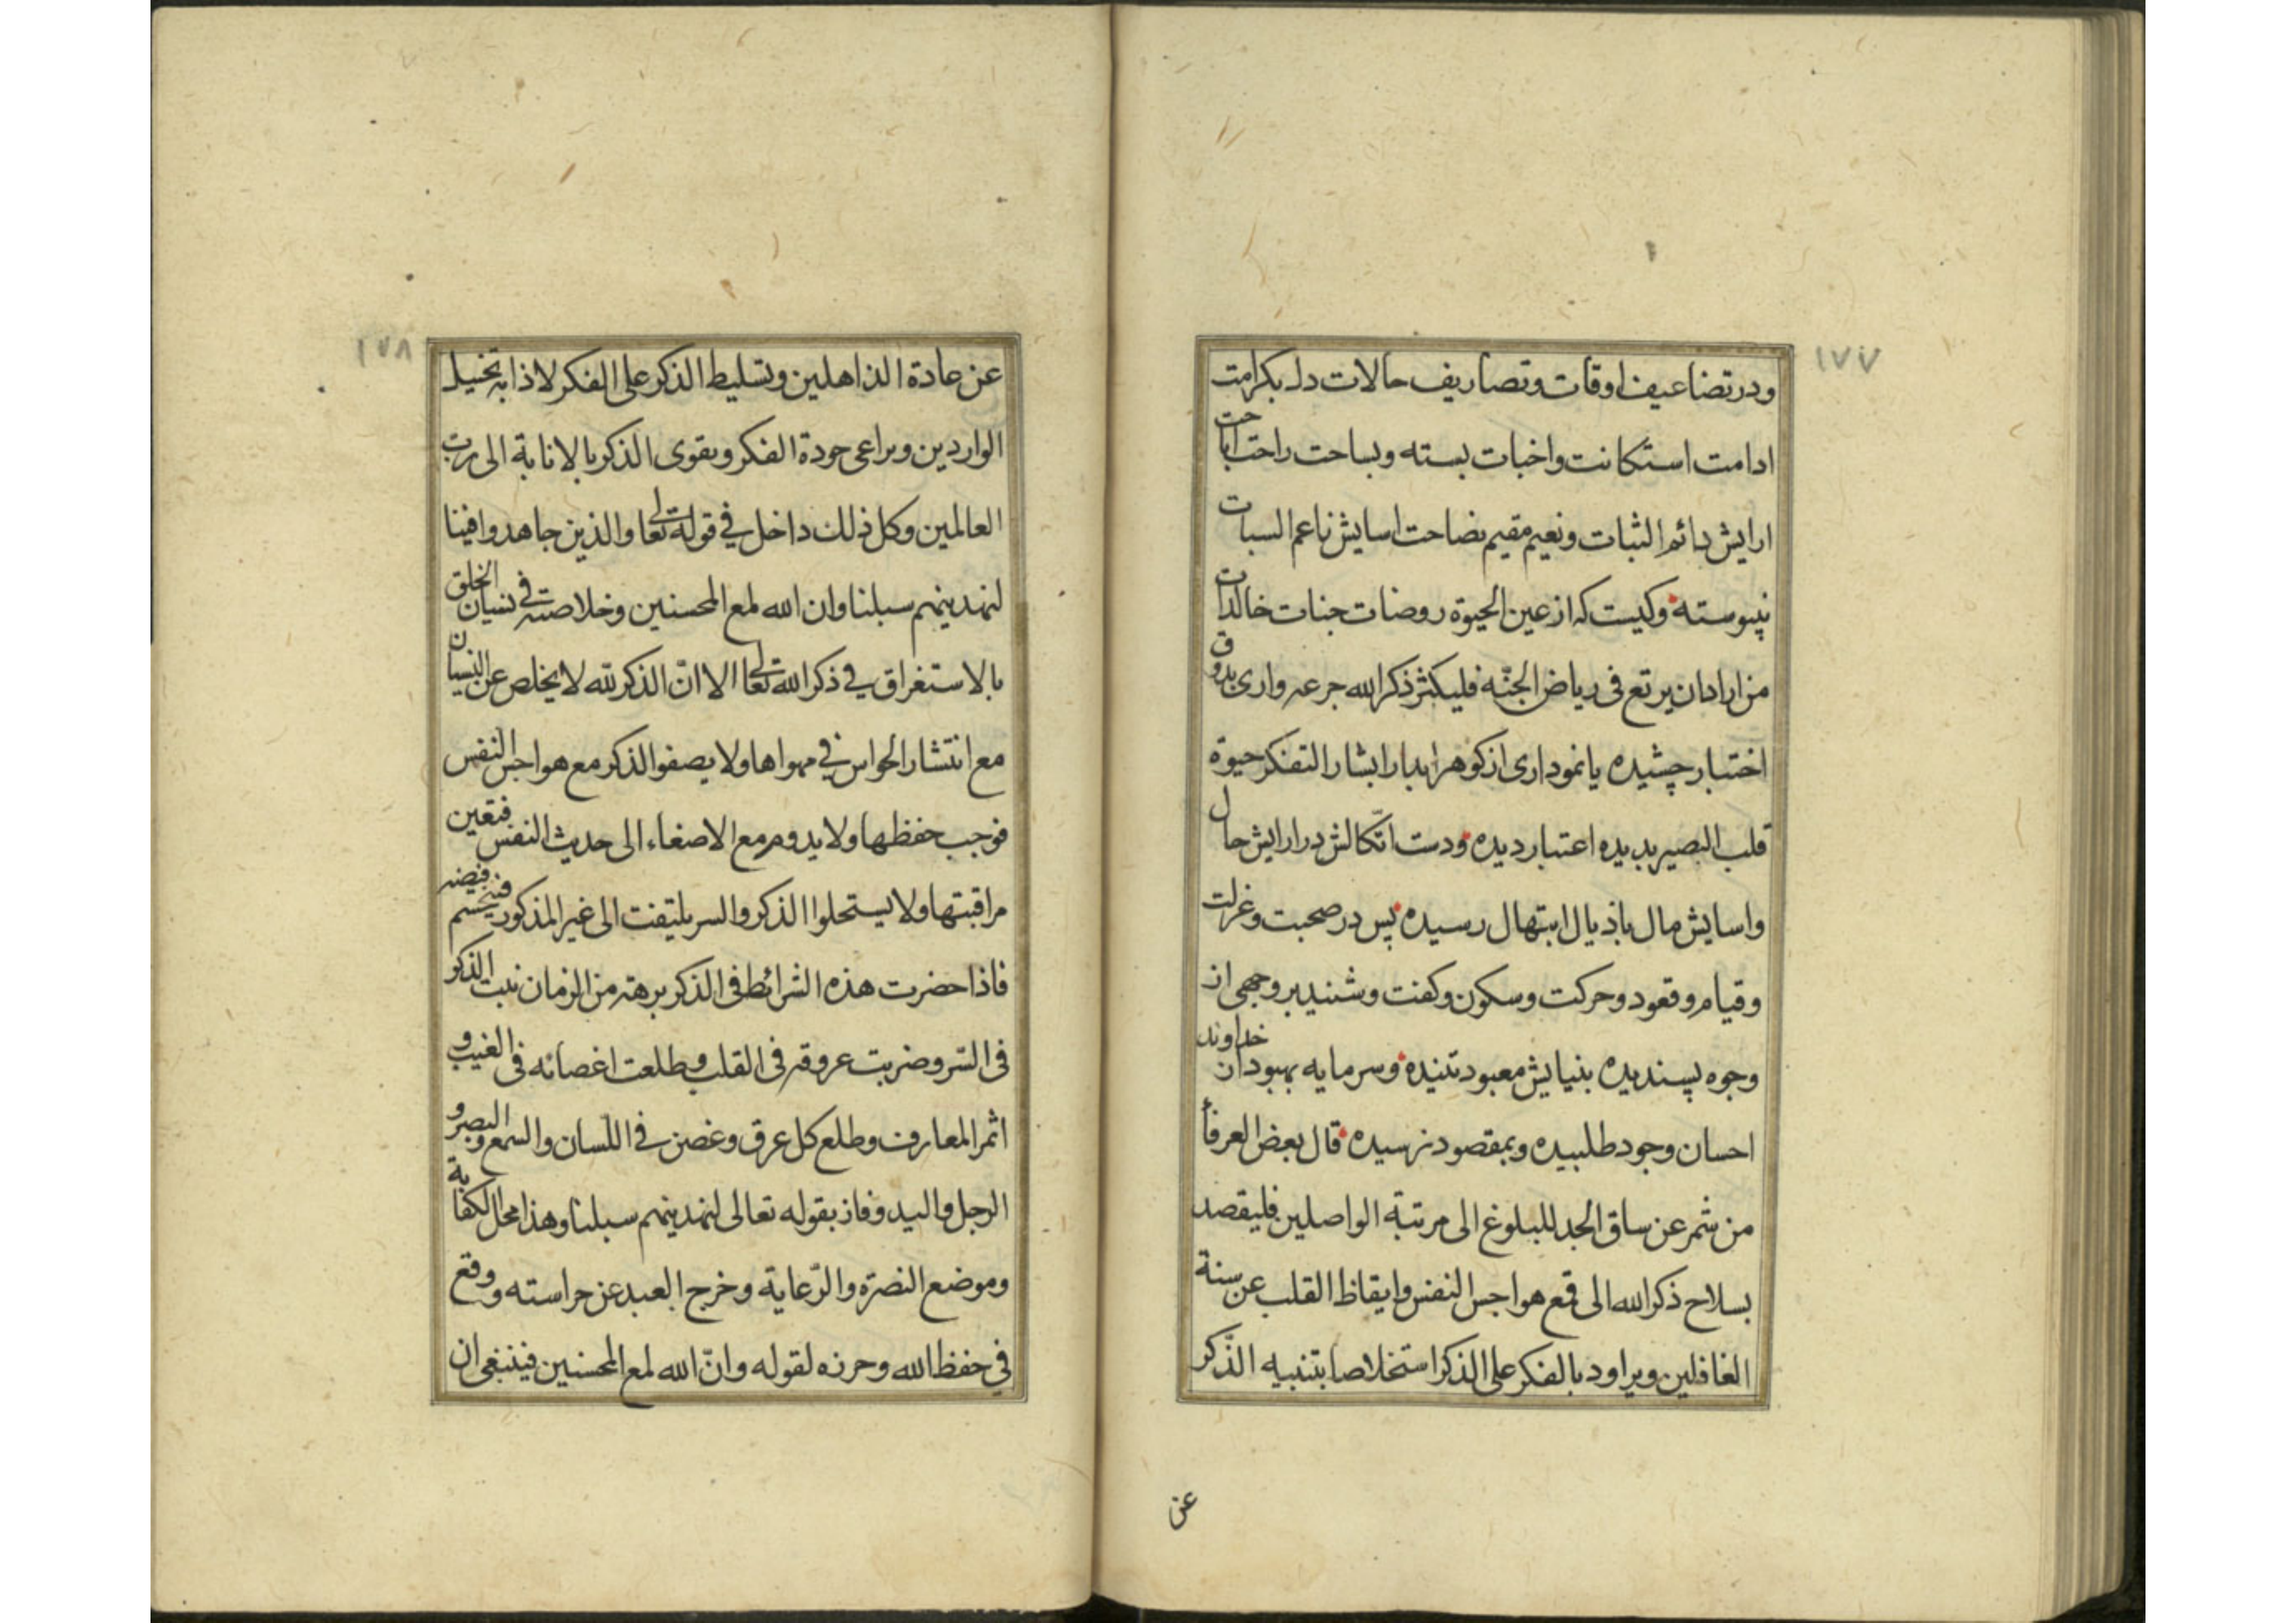 ١٧٧
ودر تضاعيف اوقات وتصاريف حالات دل بكرامت
ادامت استكانت واخبات بسته وبساحت راحت اباحت
ارايش دائم الثبات ونعيم مقيم نضاحت اسايش ناعم السبات
نپيوسته وكيست كه از عين الحيوة روضات جنات خالدات
من اراد ان يرتع فى رياض الجنّه فليكثر ذكر الله جرعه وارى بذوق
اختبار چشيده يا نمودارى از كوهر ابدار ابشار التفكر حيوة
قلب البصير بديده اعتبار ديده ودست اتّكالش در ارايش حال
واسايش مال باذيال ابتهال رسيده پس در صحبت وعزلت
وقيام وقعود وحركت وسكون وكفت وشنيد بر وجهى از
وجوه پسنديده بنيايش معبود تنيده وسرمايه بهبود از خداوند
احسان وجود طلبيده وبمقصود نرسيده قال بعض العرفأ
من شمر عن ساق الجد للبلوغ الى مرتبة الواصلين فليقصد
بسلاح ذكر الله الى قمع هواجس النفس وايقاظ القلب عن سنة
الغافلين ويراود بالفكر على الذكر استخلاصا بتنبيه الذّكر
عن
١٧٨
عن عادة الذاهلين وتسليط الذكر على الفكر لاذابه تخييل
الواردين ويراعى جودة الفكر ويقوى الذكر بالانابة الى رب
العالمين وكل ذلك داخل في قوله تعالى والذين جاهدوا فينا
لنهدينهم سبلنا وان الله لمع المحسنين وخلاصته فى نسيان الخلق
بالاستغراق في ذكر الله تعالى الا انّ الذكر لله لا يخلص عن النسيان
مع انتشار الحواس في مهواها ولا يصفو الذكر مع هواجس النفس
فوجب حفظها ولا يدوم مع الاصغاء الى حديث النفس فتعين
مراقبتها ولا يستحلوا الذكر والسر يلتفت الى غير المذكور فينحسم فيضه
فاذا حضرت هذه الشرائط فى الذكر برهة من الزمان نبت الذكر
فى السّر وضربت عروقه فى القلب وطلعت اغصانه فى الغيب و
اثمر المعارف وطلع كل عرق وغصن في اللّسان والسمع والبصر و
الرجل واليد وفاز بقوله تعالى لنهدينهم سبلنا وهذا محل الكفاية
وموضع النصرة والرّعاية وخرج العبد عن حراسته ووقع
في حفظ الله وحرزه لقوله وانّ الله لمع المحسنين فينبغى ان